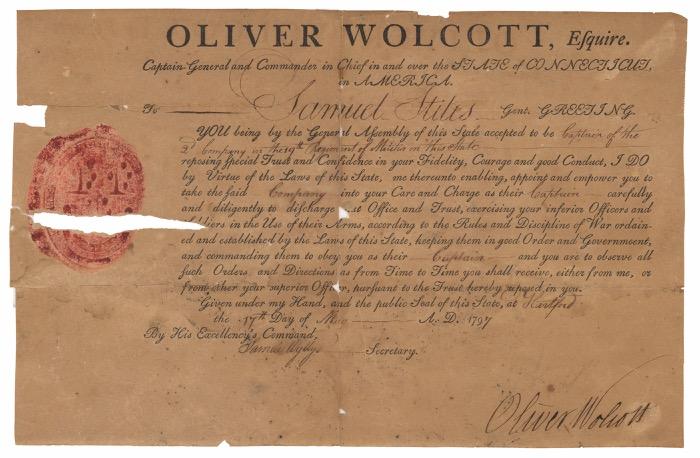 OLIVER WOLCOTT, Eſquire.
Captain-General and Commander in Chief in and over the STATE of CONNECTICUT,
in AMERICA.
To Samuel Stiles Gent. GREETING.
YOU being by the General Aſſembly of this State accepted to be Captain of the
2d Company in the 19th Regiment of Militia in this State
repoſing ſpecial Truſt and Confidence in your Fidelity, Courage and good Conduct, I DO
by Virtue of the Laws of this State, me thereunto enabling, appoint and empower you to
take the ſaid Company into your Care and Charge as their Captain carefully
and diligently to diſcharge at Office and Truſt, exerciſing your inferior Officers and
ldiers in the Uſe of their Arms, according to the Rules and Diſcipline of War ordain-
ed and eſtabliſhed by the Laws of this State, keeping them in good Order and Government,
and commanding them to obey you as their Captain and you are to obſerve all
ſuch Orders and Directions as from Time to Time you ſhall receive, either from me, or
from other your ſuperior Officer, purſuant to the Truſt hereby repoſed in you.
Given under my Hand, and the public Seal of this State, at Hartford
the 17th Day of May A. D. 1797
By His Excellency's Command,
Secretary.
Oliver Wolcott